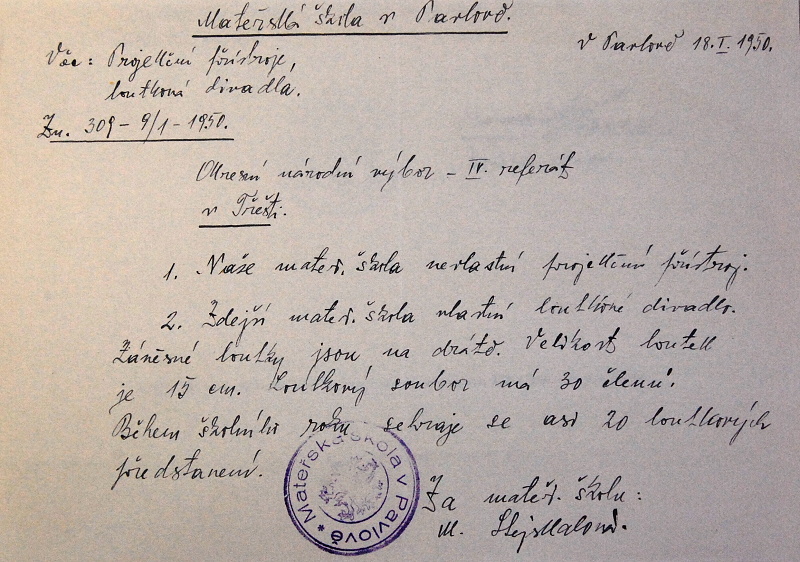 Mateřská škola v Pavlově.
V Pavlově 18.I. 1950.
Věc: Projekční přístroje,
loutková divadla.
Zn. 309 – 9/1 – 1950.
Okresní národní výbor – IV. referát
v Třešti.
1. Naše mateř. škola nevlastní projekční přístroj.
2. Zdejší mateř. škola vlastní loutkové divadlo.
Závěsné loutky jsou na drátě. Velikost loutek
je 15 cm. Loutkový soubor má 30 členů.
Během školního roku sehraje se asi 20 loutkových
představení.
Za mateř. školu:
M. Stejskalová.
* Mateřská škola v Pavlově